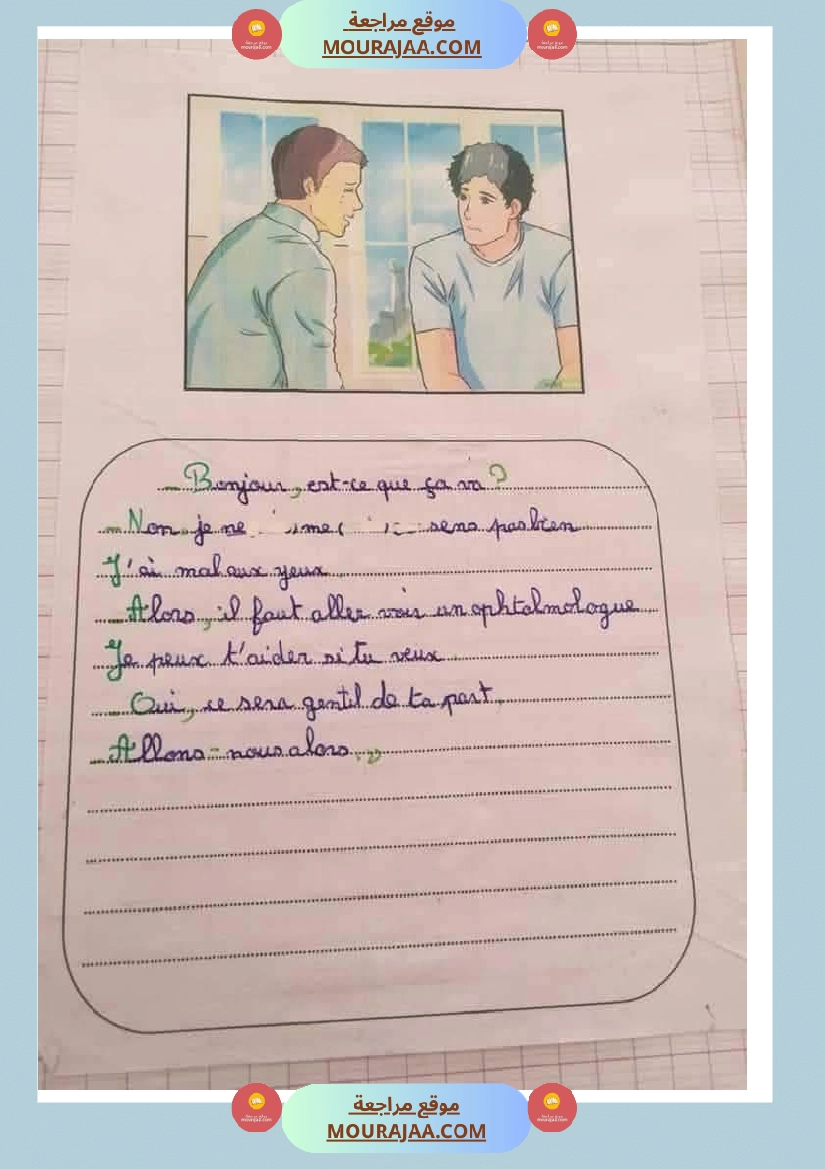 موقع مراجعة
MOURAJAA.COM
- Bonjour, est-ce que ça va ?
- Non. je ne me sens pas bien
J'ai mal aux yeux
- Alors, il faut aller voir un ophtalmologue
Je peux t'aider si tu veux
- Oui, ce sera gentil de ta part.
- Allons-nous alors. »
موقع مراجعة
MOURAJAA.COM